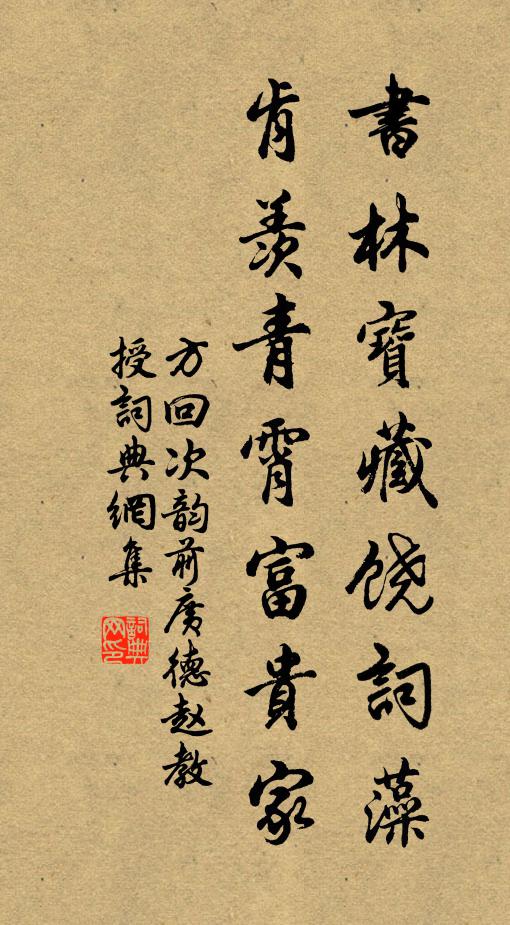 書林寶藏饶詞藻
肯羨青霄富貴家
方回次韵前廣德赵教
授詞典網集
詞典网印